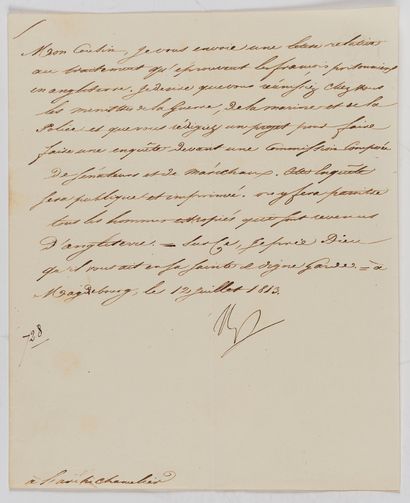 Mon Cousin, je vous envoie une lettre relative
au traitement qu'éprouvent les français prisonniers
en angleterre. Je desire que vous réunissiez chez vous
les ministres de la Guerre, de la marine et de la
Police et que vous rédigiez un projet pour faire
faire une enquête devant une Commission Composée
de Sénateurs et de Maréchaux. Cette Enquête
sera publique et imprimée. on y fera paraitre
tous les hommes estropiés qui sont revenus
D'angleterre. = Sur Ce, Je prie Dieu
qu'il vous ait en sa sainte et digne Garde = à
Magdebourg, le 12 juillet 1813.
Np
728
à l'archichancelier